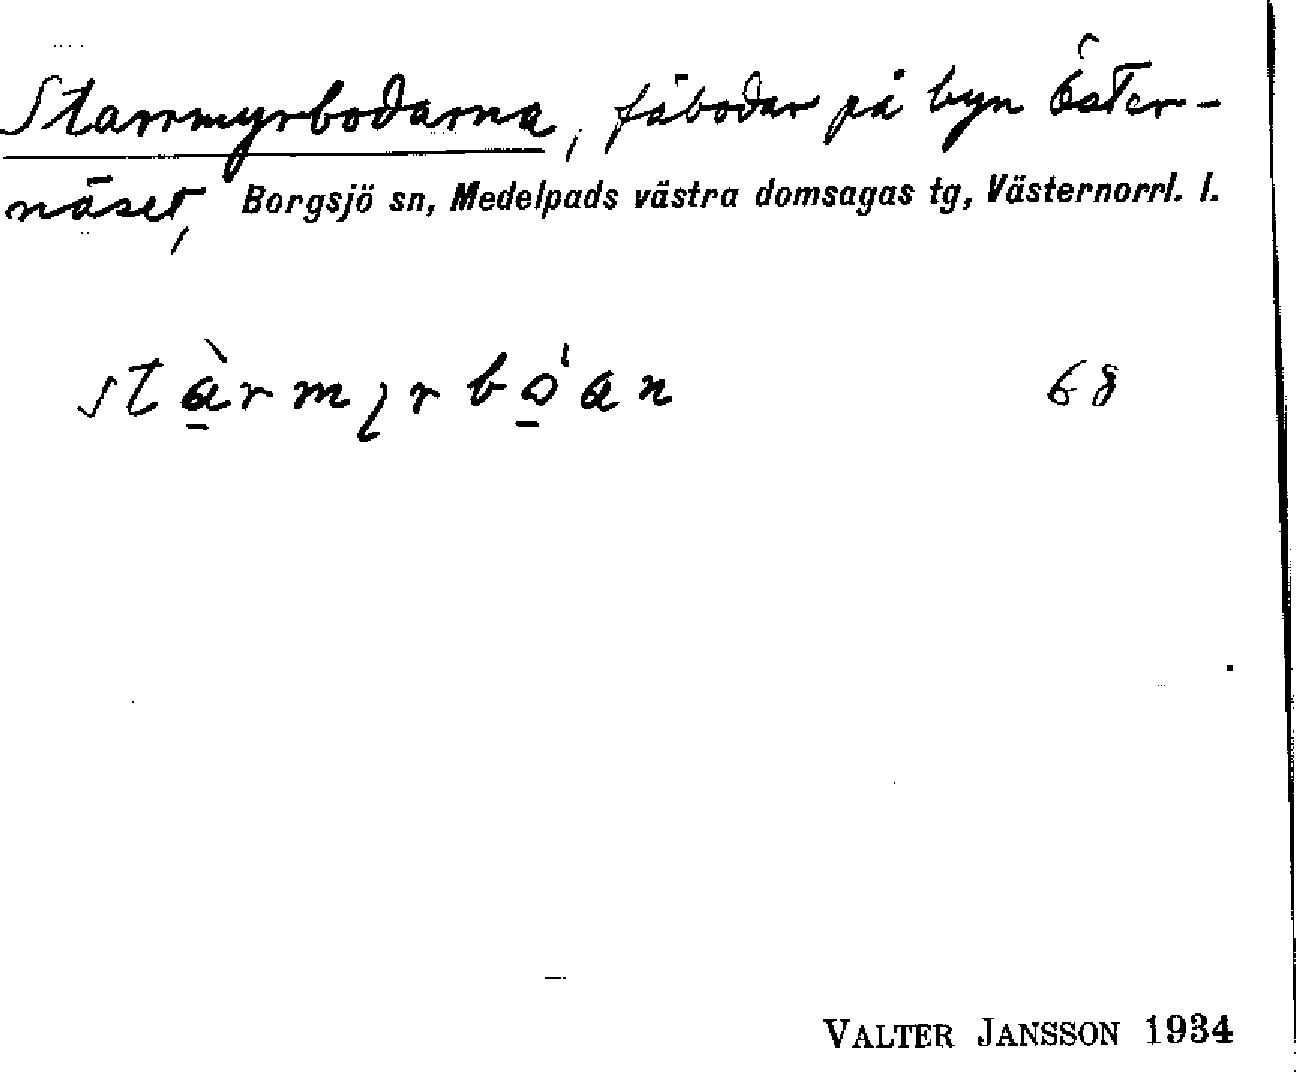 Starrmyrbodarna, fäbodar på byn Öster-
näset, Borgsjö sn, Medelpads västra domsagas tg, Västernorrl. l.
stàrmyrbo̱'an 68
VALTER JANSSON 1934